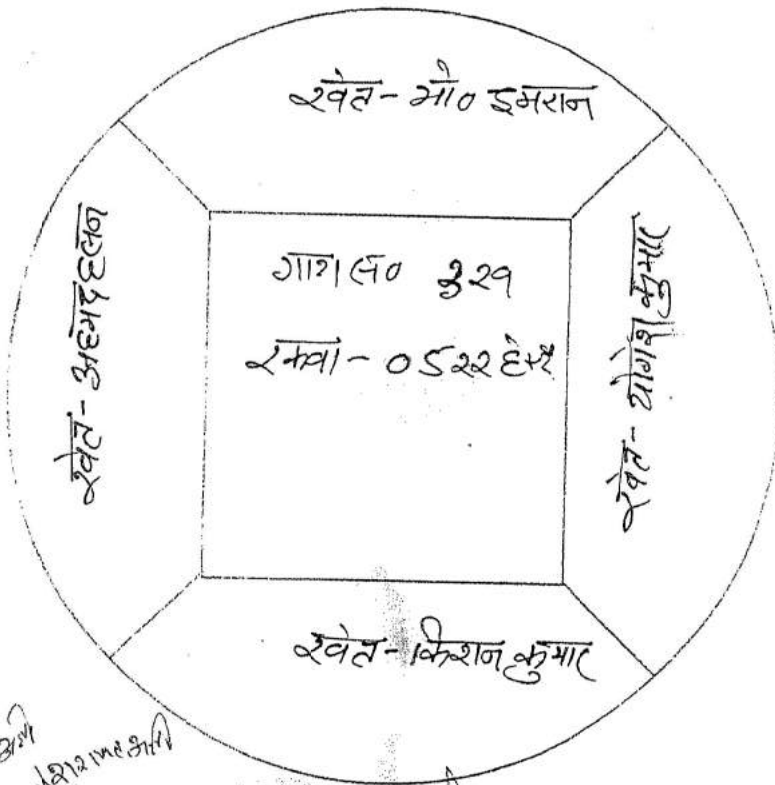 खेत - मो० इमरान
खेत - अहमद हसन
गाटा सं० 329
रकवा - 0522 हे०
खेत - योगेश कुमार
खेत - किशन कुमार